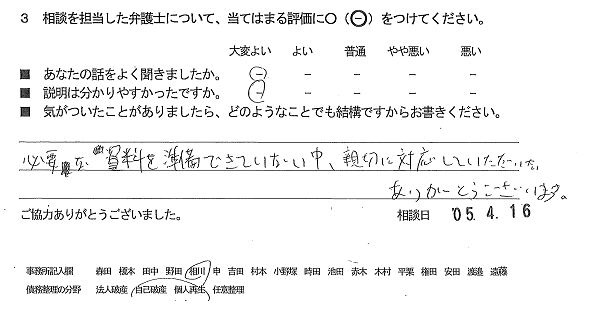 3 相談を担当した弁護士について、当てはまる評価に○(⊖)をつけてください。
大変よい よい 普通 やや悪い 悪い
■ あなたの話をよく聞きましたか。 − − − − −
■ 説明は分かりやすかったですか。 − − − − −
■ 気がついたことがありましたら、どのようなことでも結構ですからお書きください。
必要な資料を準備できていない中、親切に対応していただいて、
ありがとうございます。
ご協力ありがとうございました。 相談日 '05.4.16
事務所記入欄 森田 榎本 田中 野田 相川 申 吉田 村本 小野塚 時田 治田 赤木 木村 平栗 権田 安田 渡邉 遠藤
債務整理の分野 法人破産 自己破産 個人再生 任意整理